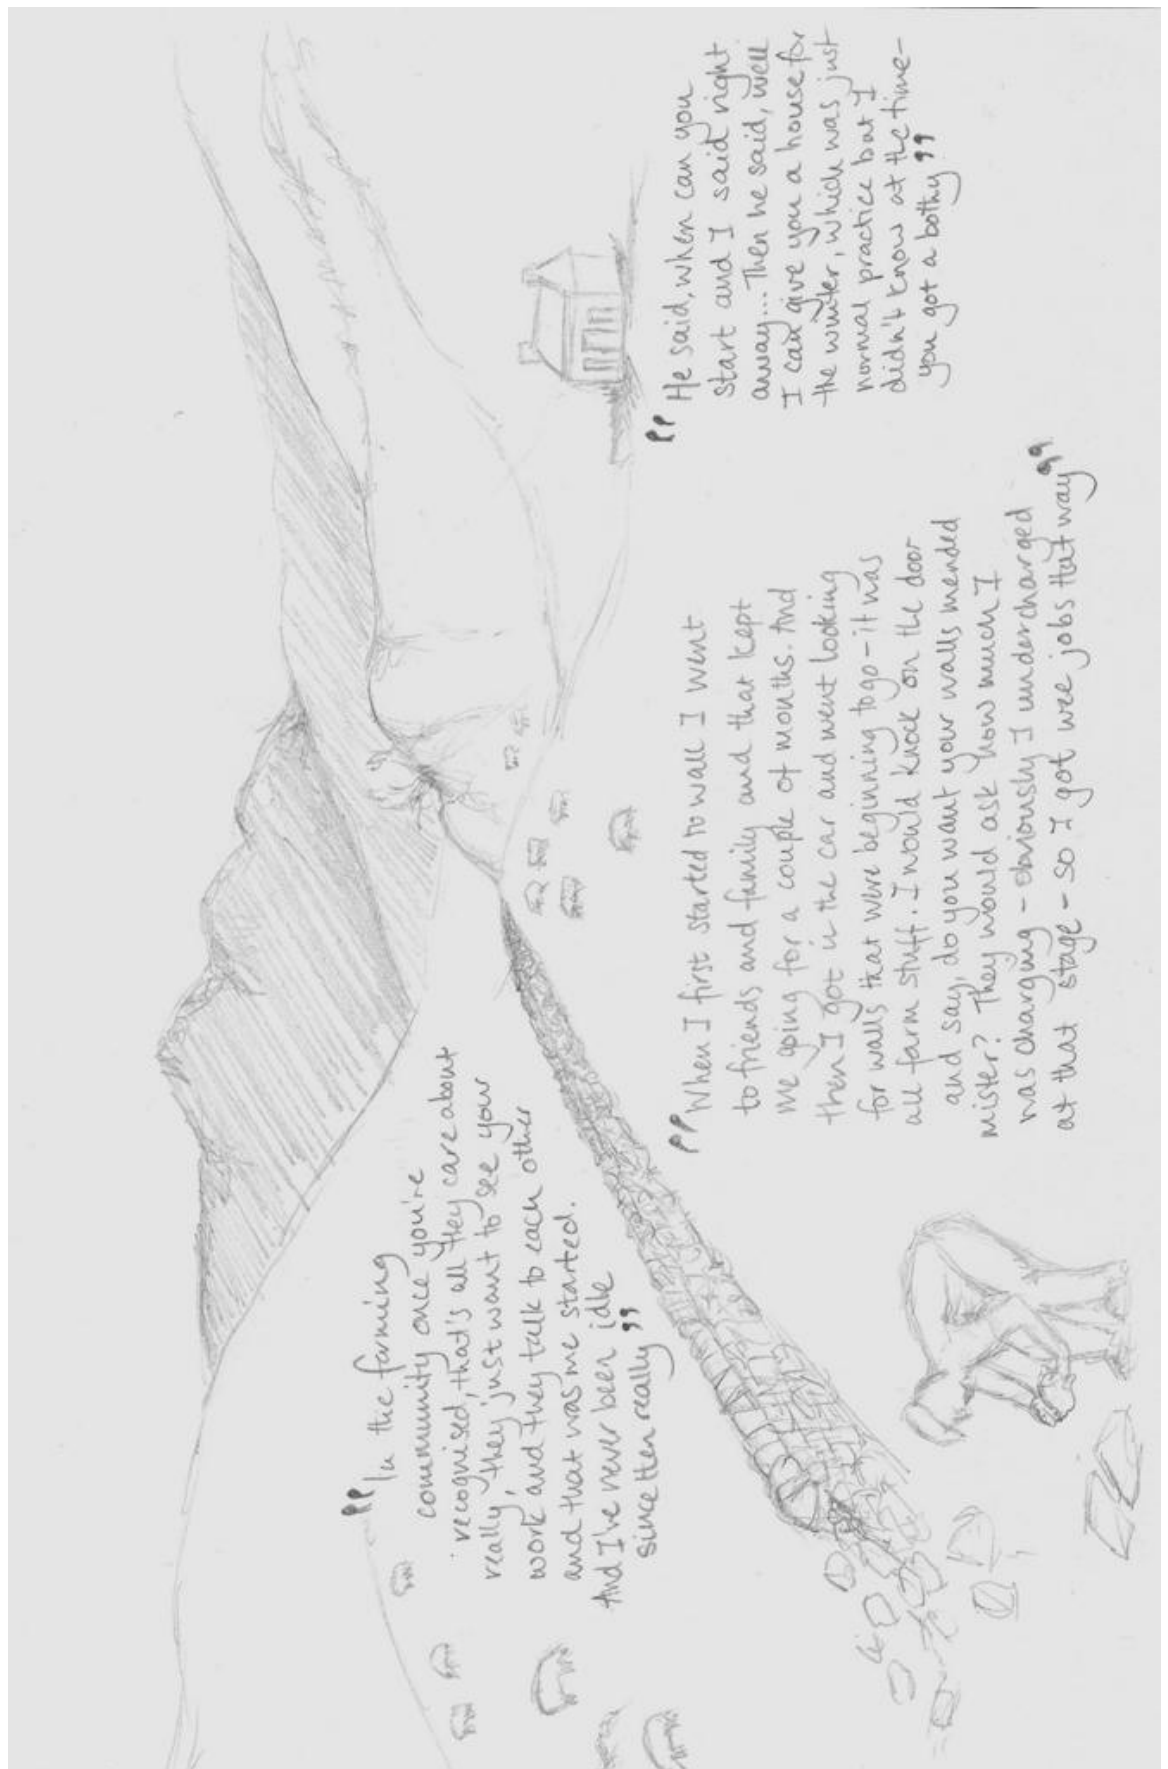 "In the farming
community once you're
recognised, that's all they care about
really, they just want to see your
work and they talk to each other
and that was me started.
And I've never been idle
since then really"
"When I first started to wall I went
to friends and family and that kept
me going for a couple of months. And
then I got in the car and went looking
for walls that were beginning to go - it was
all farm stuff. I would knock on the door
and say, do you want your walls mended
mister? They would ask how much I
was charging - obviously I undercharged
at that stage - so I got wee jobs that way"
"He said, when can you
start and I said right
away... Then he said, well
I can give you a house for
the winter, which was just
normal practice but I
didn't know at the time -
you got a bothy"